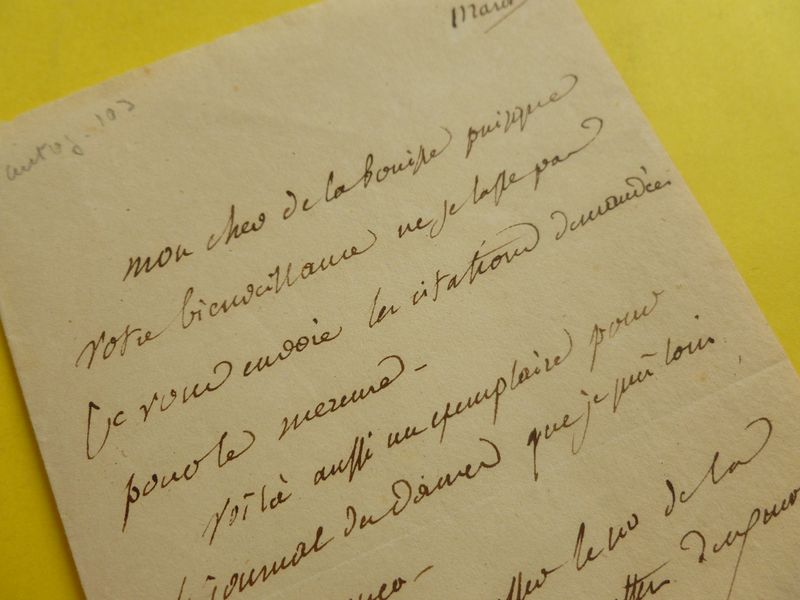 autog. 103
mon cher de la bouisse puisque
votre bienveillance ne se lasse pas
je vous envoie les citations demandées
pour le mercure –
voilà aussi un exemplaire pour
journal des Dames que je
de la